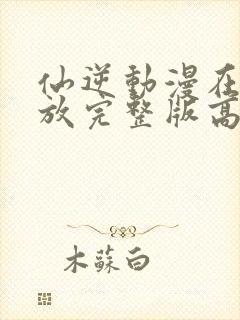 仙逆動漫在
放完整版高
木蘇白